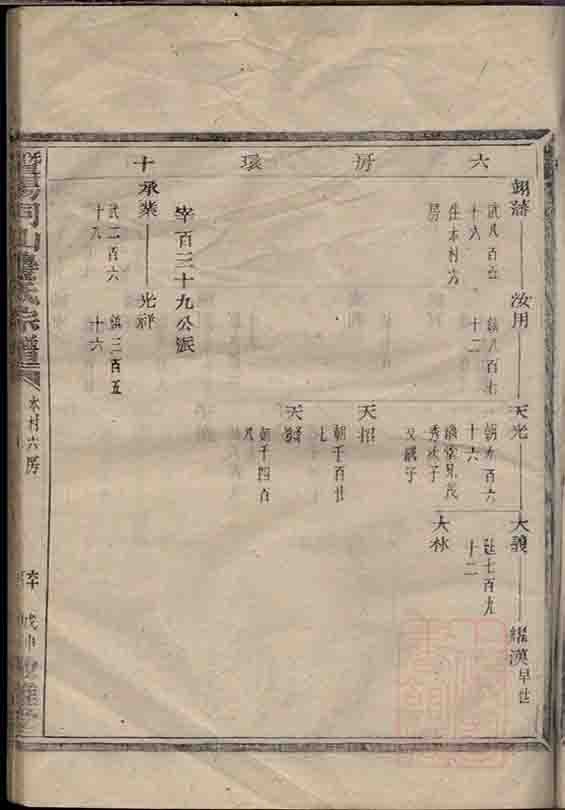 六房環十
翊藩
武八百五
十六
住本村六
房
汝用
鎮八百七
十二
天光
朝九百六
十六
繼堂兄茂
秀次子
又繼子
天招
朝千百廿
七
天
朝千四百
八
大義
廷七百九
十二
大林
耀漢早世
宰百三十九公派
承業
武二百六
十八
光祥
鎮三百五
十六
氏宗譜
本村六房